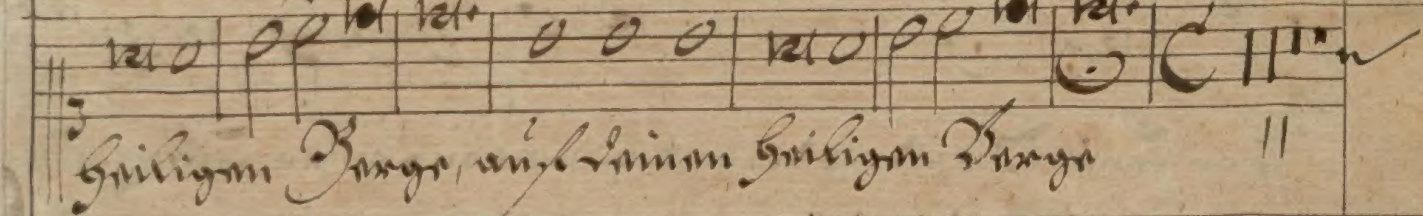 heiligen Berge, auf deinen heiligen Berge